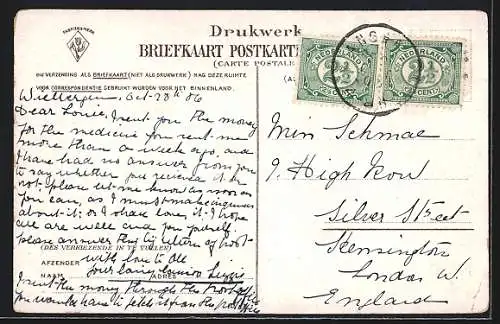 FABRIEKSMERK
Drukwerk
BRIEFKAART POSTKART
(CARTE POSTALE
BIJ VERZENDING ALS BRIEFKAART (NIET ALS DRUKWERK) MAG DEZE RUIMTE
VOOR CORRESPONDENTIE GEBRUIKT WORDEN VOOR HET BINNENLAND.
NEDERLAND
2½
CENT
NEDERLAND
2½
CENT
Oct 28th 06
Dear Louie, I sent you the money
for the medicine you sent me
more than a week ago, and
I have had no answer from you
to say whether you received it or
not, please let me know as soon as
you can, as I must make inquiries
about it, or I shall lose it. I hope
all are well and you yourself.
please answer this by return of post
(DES VERKIEZENDE IN TE VULLEN)
with love to all
AFZENDER
your loving cousin Lizzie
NAAM ADRES
I sent the money through the Post Office
you would have to fetch it from the post office
Miss Schmae
9. High Row
Silver Street
Kensington
London W.
England